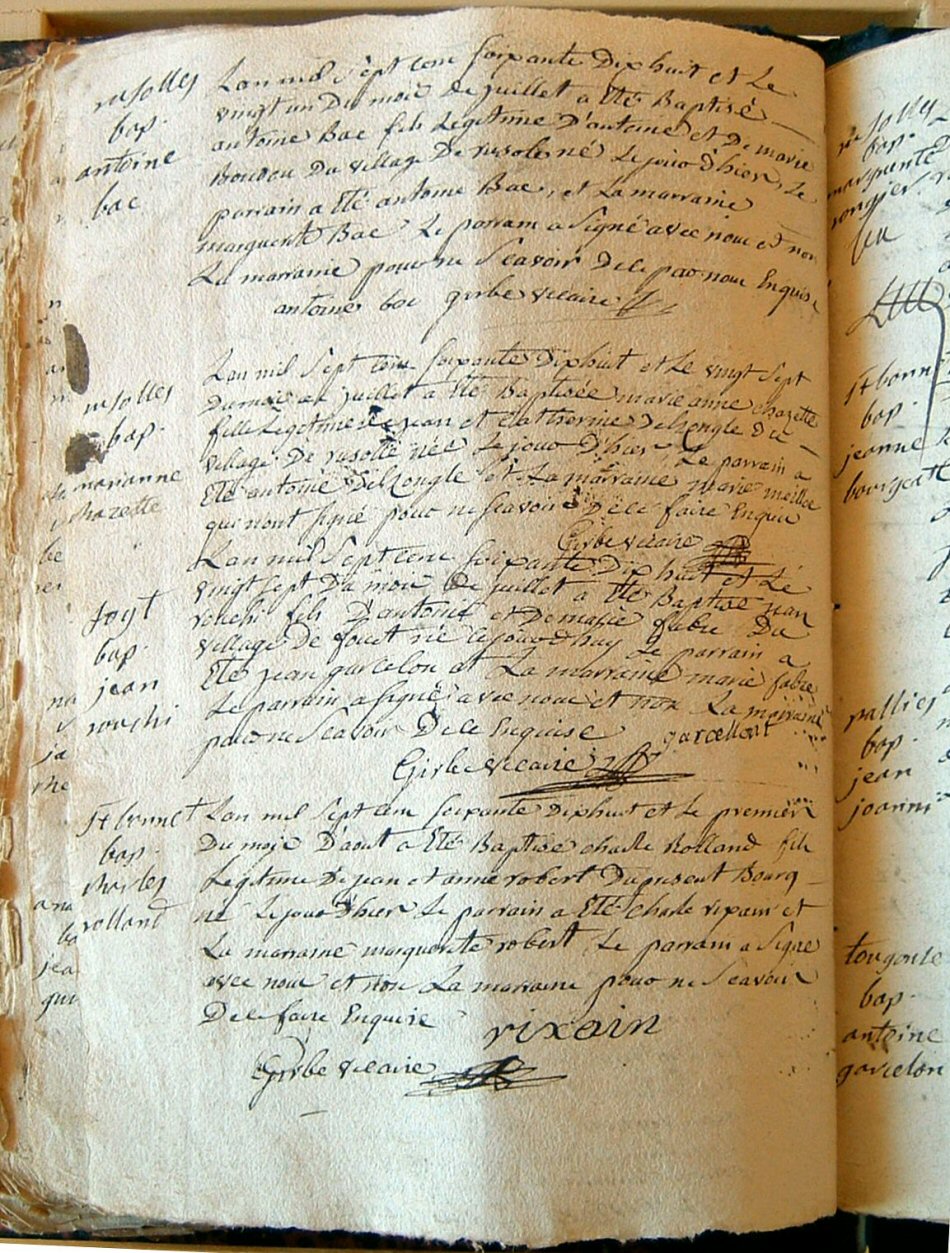 rusolles
bap.
antoine
bac
Lan mil sept cen soixante Dixhuit et Le
vingt un Du mois de juillet a Eté Baptisé
antoine Bac fils Legitime D'antoine et De marie
Boudou Du village De rusoles né Le jour d'hier, Le
parrain a Eté antoine Bac, et La marraine
marguerite Bac Le parrain a signé avec nous et non
La marraine pour ne sçavoir De le par nous Enquise
antoine bac girbe vicaire
rusolles
bap.
marianne
chazette
Lan mil sept cens soixante Dixhuit et Le vingt sept
Du mois de juillet a Eté Baptisée marie anne chazette
fille Legitime de jean et Catherine Delzongle du
village De rusolle née Le jour D'hier Le parrain a
Eté antoine Delzongle et La marraine marie
qui nont signé pour ne sçavoir De le faire Enquis
Girbe vicaire
bap.
jean
rouchi
Lan mil sept cens soixante Dixhuit et Le
vingt sept Du mois De juillet a Eté Baptisé jean
rouchi fils D'antoine et De marie fabre Du
village De né ce jourd'huy Le parrain a
Eté jean garcelon et La marraine marie fabre
Le parrain a signé avec nous et non La marraine
pour ne sçavoir De le Enquise garcellont
Girbe vicaire
st bonnet
bap.
charles
rolland
Lan mil sept cens soixante Dixhuit et Le premier
Du mois D'aout a Eté Baptisé charle Rolland fils
Legitime De jean et anne robert Du present Bourg
né Le jour d'hier Le parrain a Eté charle rixain et
La marraine marguerite robert Le parrain a signé
avec nous et non La marraine pour ne sçavoir
De le faire Enquise rixain
Girbe vicaire
bap.
marguerite
st bonn
bap.
jeanne
pallies
bap.
jean
joanni
bap.
antoine
garcelon